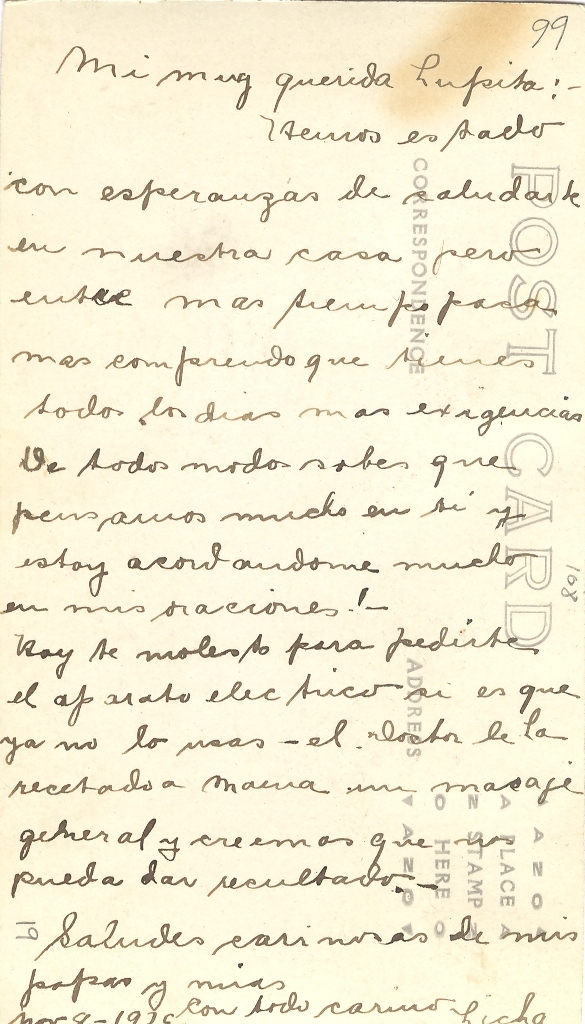 99
Mi muy querida Lupita:-
Hemos estado
con esperanzas de saludarte
en nuestra casa pero
entre mas tiempo pasa
mas comprendo que tienes
todos los dias mas exigencias
De todos modos sabes que
pensamos mucho en tí y
estoy acordandome mucho
en mis oraciones!-
Hoy te molesto para pedirte
el aparato electrico si es que
ya no lo usas - el Doctor le ha
recetado a mama un masaje
general y creemos que nos
pueda dar recultado.-
Saludes carinosas de mis
papas y mias
con todo carino Licha
Nov 8-192
19
168
POST CARD
CORRESPONDENCE
ADDRESS
PLACE
STAMP
HERE
AZO